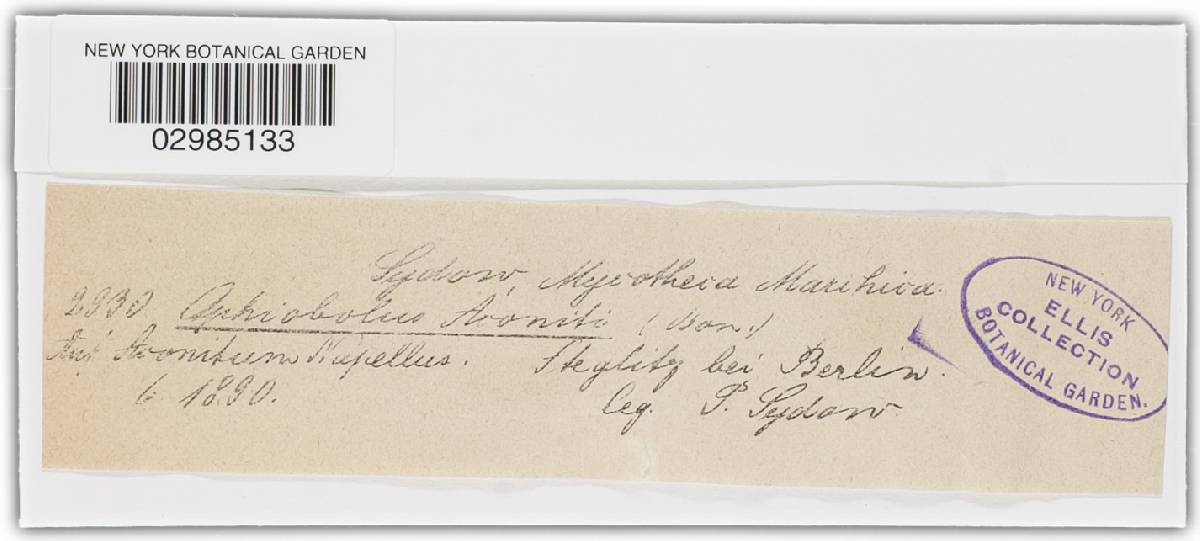 NEW YORK BOTANICAL GARDEN
02985133
Sydow, Mycotheca Marchica.
2930 Ophiobolus Aconiti
Auf Aconitum Napellus. Steglitz bei Berlin.
6 1890. leg. P. Sydow
NEW YORK
ELLIS
COLLECTION
BOTANICAL GARDEN.